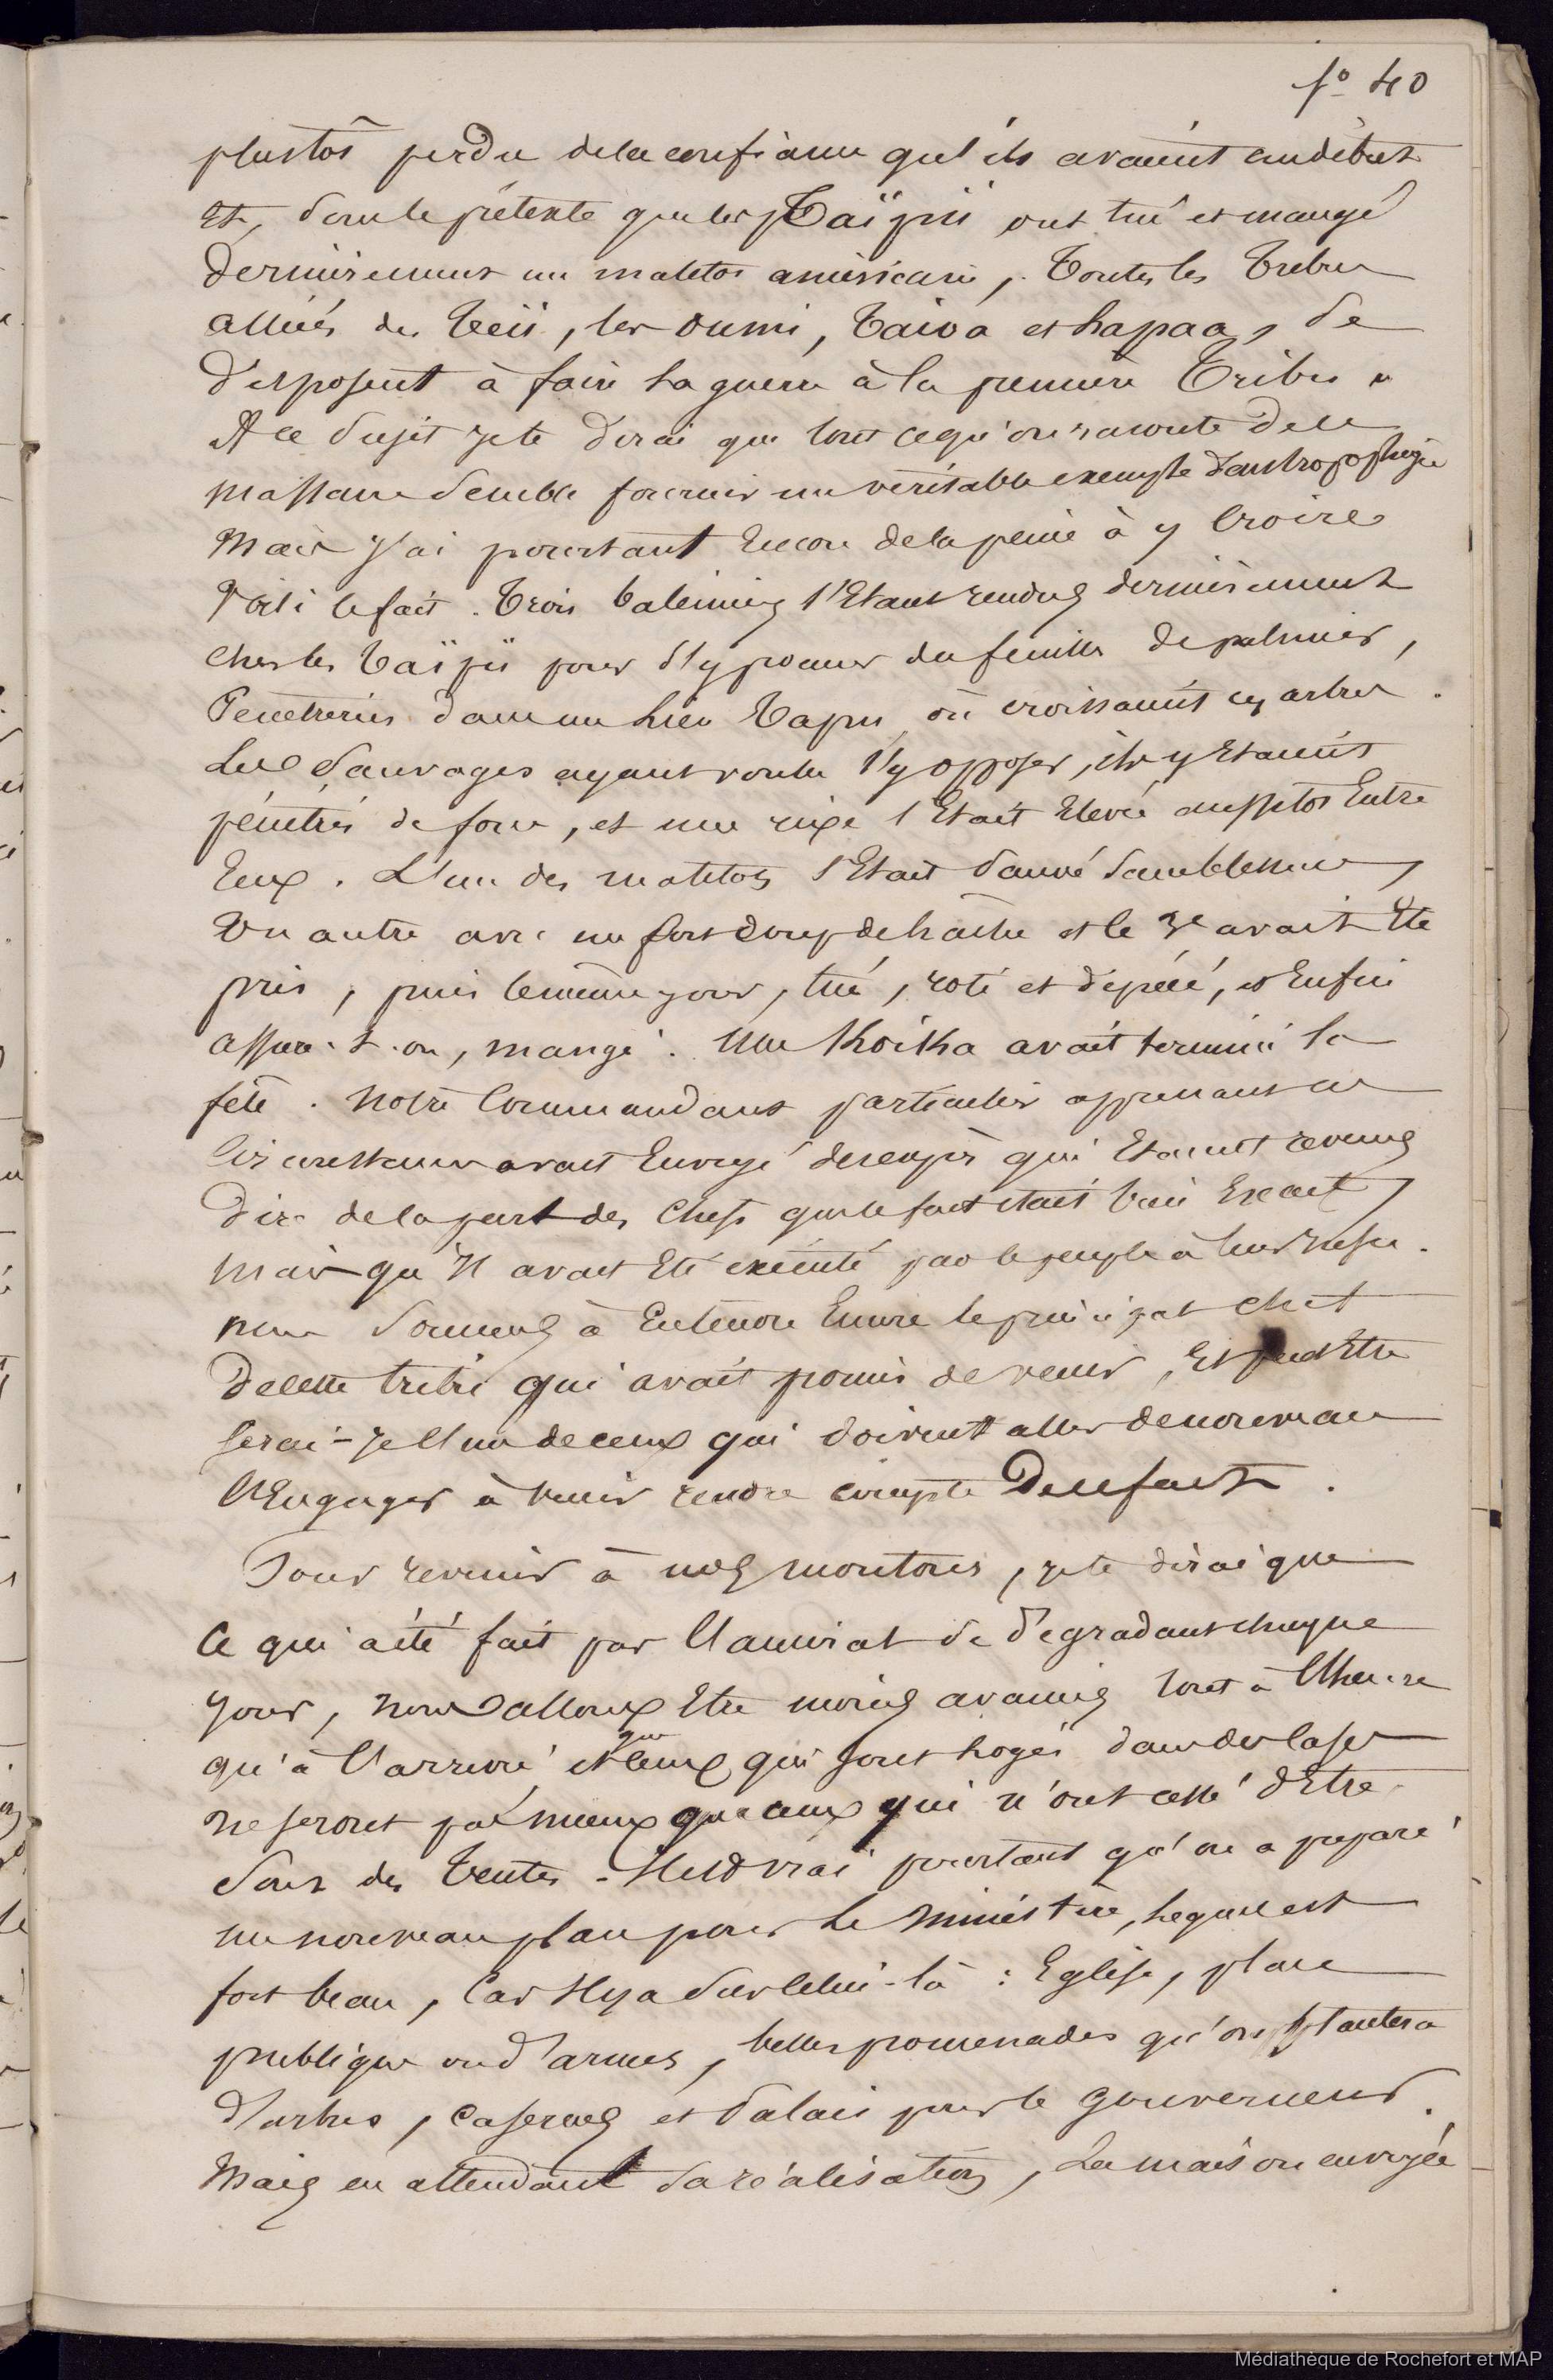 fo 40
plustôt perdu de la confiance qu'ils avaient au début
Et, sous le prétexte que les Taïpii ont tué et mangé
dernièrement un matelot américain, Toutes les Tribus
alliées des Teii, les oumi, Taioa et hapaa, se
disposent à faire la guerre à la première Tribu.
A ce sujet je te dirai que tout ce qu'on raconte de ce
massacre semble fournir un véritable exemple d'antropophagie
Mais j'ai pourtant Encore de la peine à y Croire
Voici le fait. Trois baleiniers s'Etant rendus dernièrement
chez les Taïpii pour s'y procurer des feuilles de palmier,
Pénétrèrent dans un lieu Tapu où croissaient ces arbres.
Les Sauvages ayant voulu s'y opposer, ils y Etaient
pénétrés de force, et une rixe s'Etait Elevée aussitôt Entre
Eux. L'un des matelots s'Etait sauvé sans blessure,
Un autre avec un fort coup de hache et le 3e avait Eté
pris, puis le même jour, tué, roti et dépécé, et Enfin
assure-t-on, mangé. Une Koika avait terminé la
fête. Notre Commandant particulier apprenant ces
Circonstances avait Envoyé des Kanacks qui Etaient revenus
dire de la part des Chefs que le fait était bien Exact,
mais qu'Il avait Eté exécuté par le peuple à leur insu.
nous sommes à Entendre Encore le principal chef
de cette tribu qui avait promis de venir, Et peut Etre
serai-je l'un de ceux qui doivent aller de nouveau
l'Engager à venir rendre compte De ce fait.
Pour revenir à nos moutons, je te dirai que
Ce qui a été fait par l'amiral se dégradant chaque
jour, nous allons Etre moins avancés tout à l'heure
qu'à l'arrivée et que Ceux qui sont logés dans des Cases
ne seront pas mieux que ceux qui n'ont cessé d'Etre
sous des tentes. Il est vrai pourtant qu'on a préparé
un nouveau plan pour Le Ministère, lequel est
fort beau, Car Il y a sur celui-là : Eglise, place
publique ou d'armes, belles promenades qu'on plantera
d'arbres, Casernes et Palais pour le Gouverneur.
Mais en attendant sa réalisation, La maison envoyée
Médiathèque de Rochefort et MAP